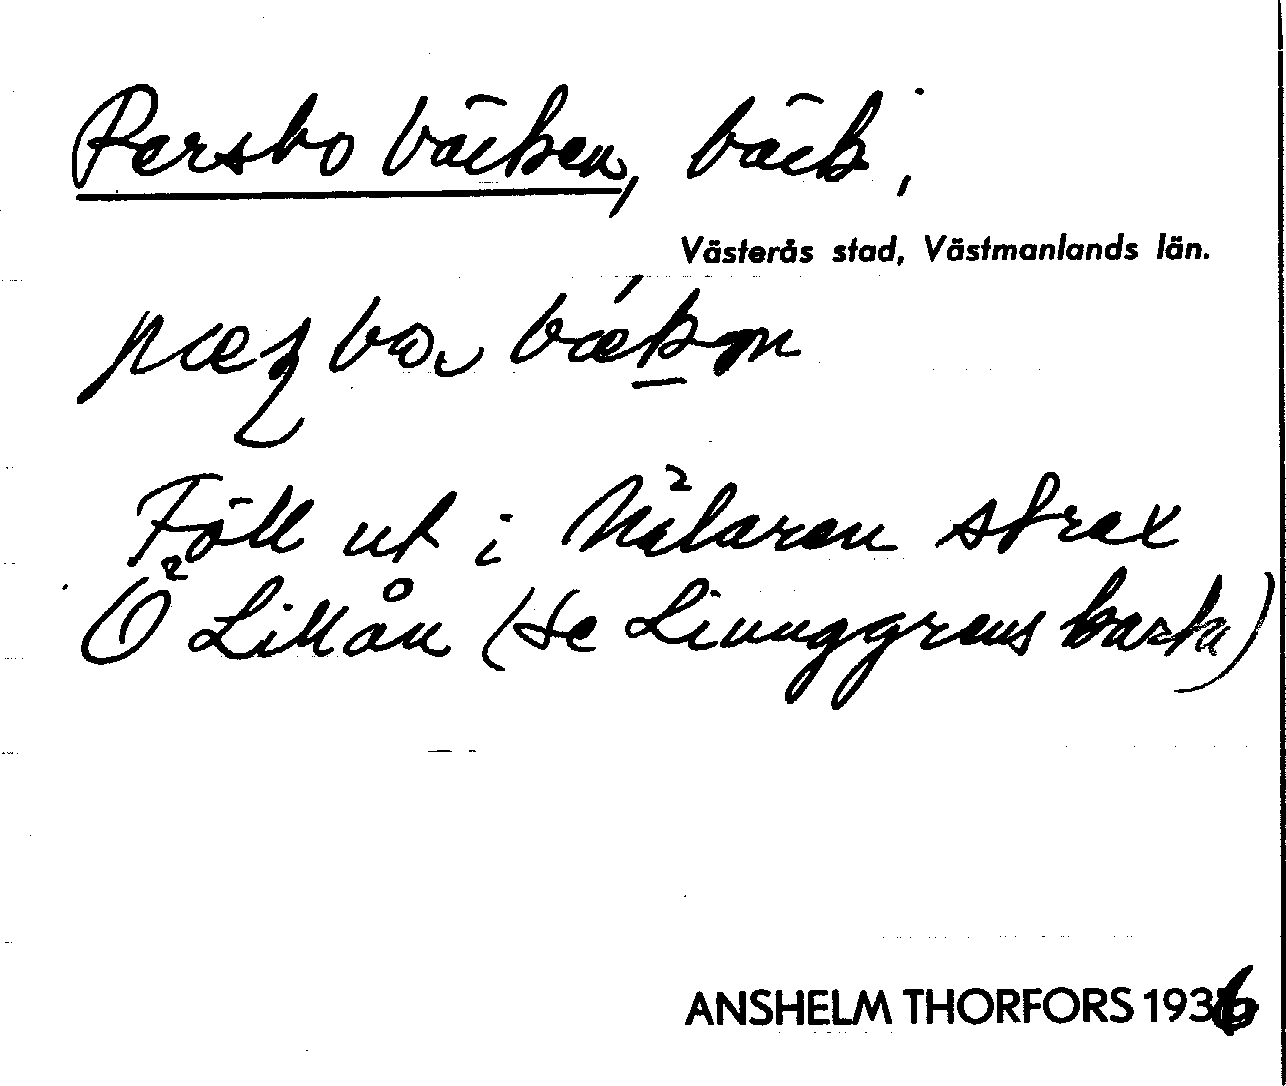 Persbo bäcken, bäck,
Västerås stad, Västmanlands län.
Föll ut i Mälaren strax
Ö Lillån (se Linnggrens karta)
ANSHELM THORFORS 1936